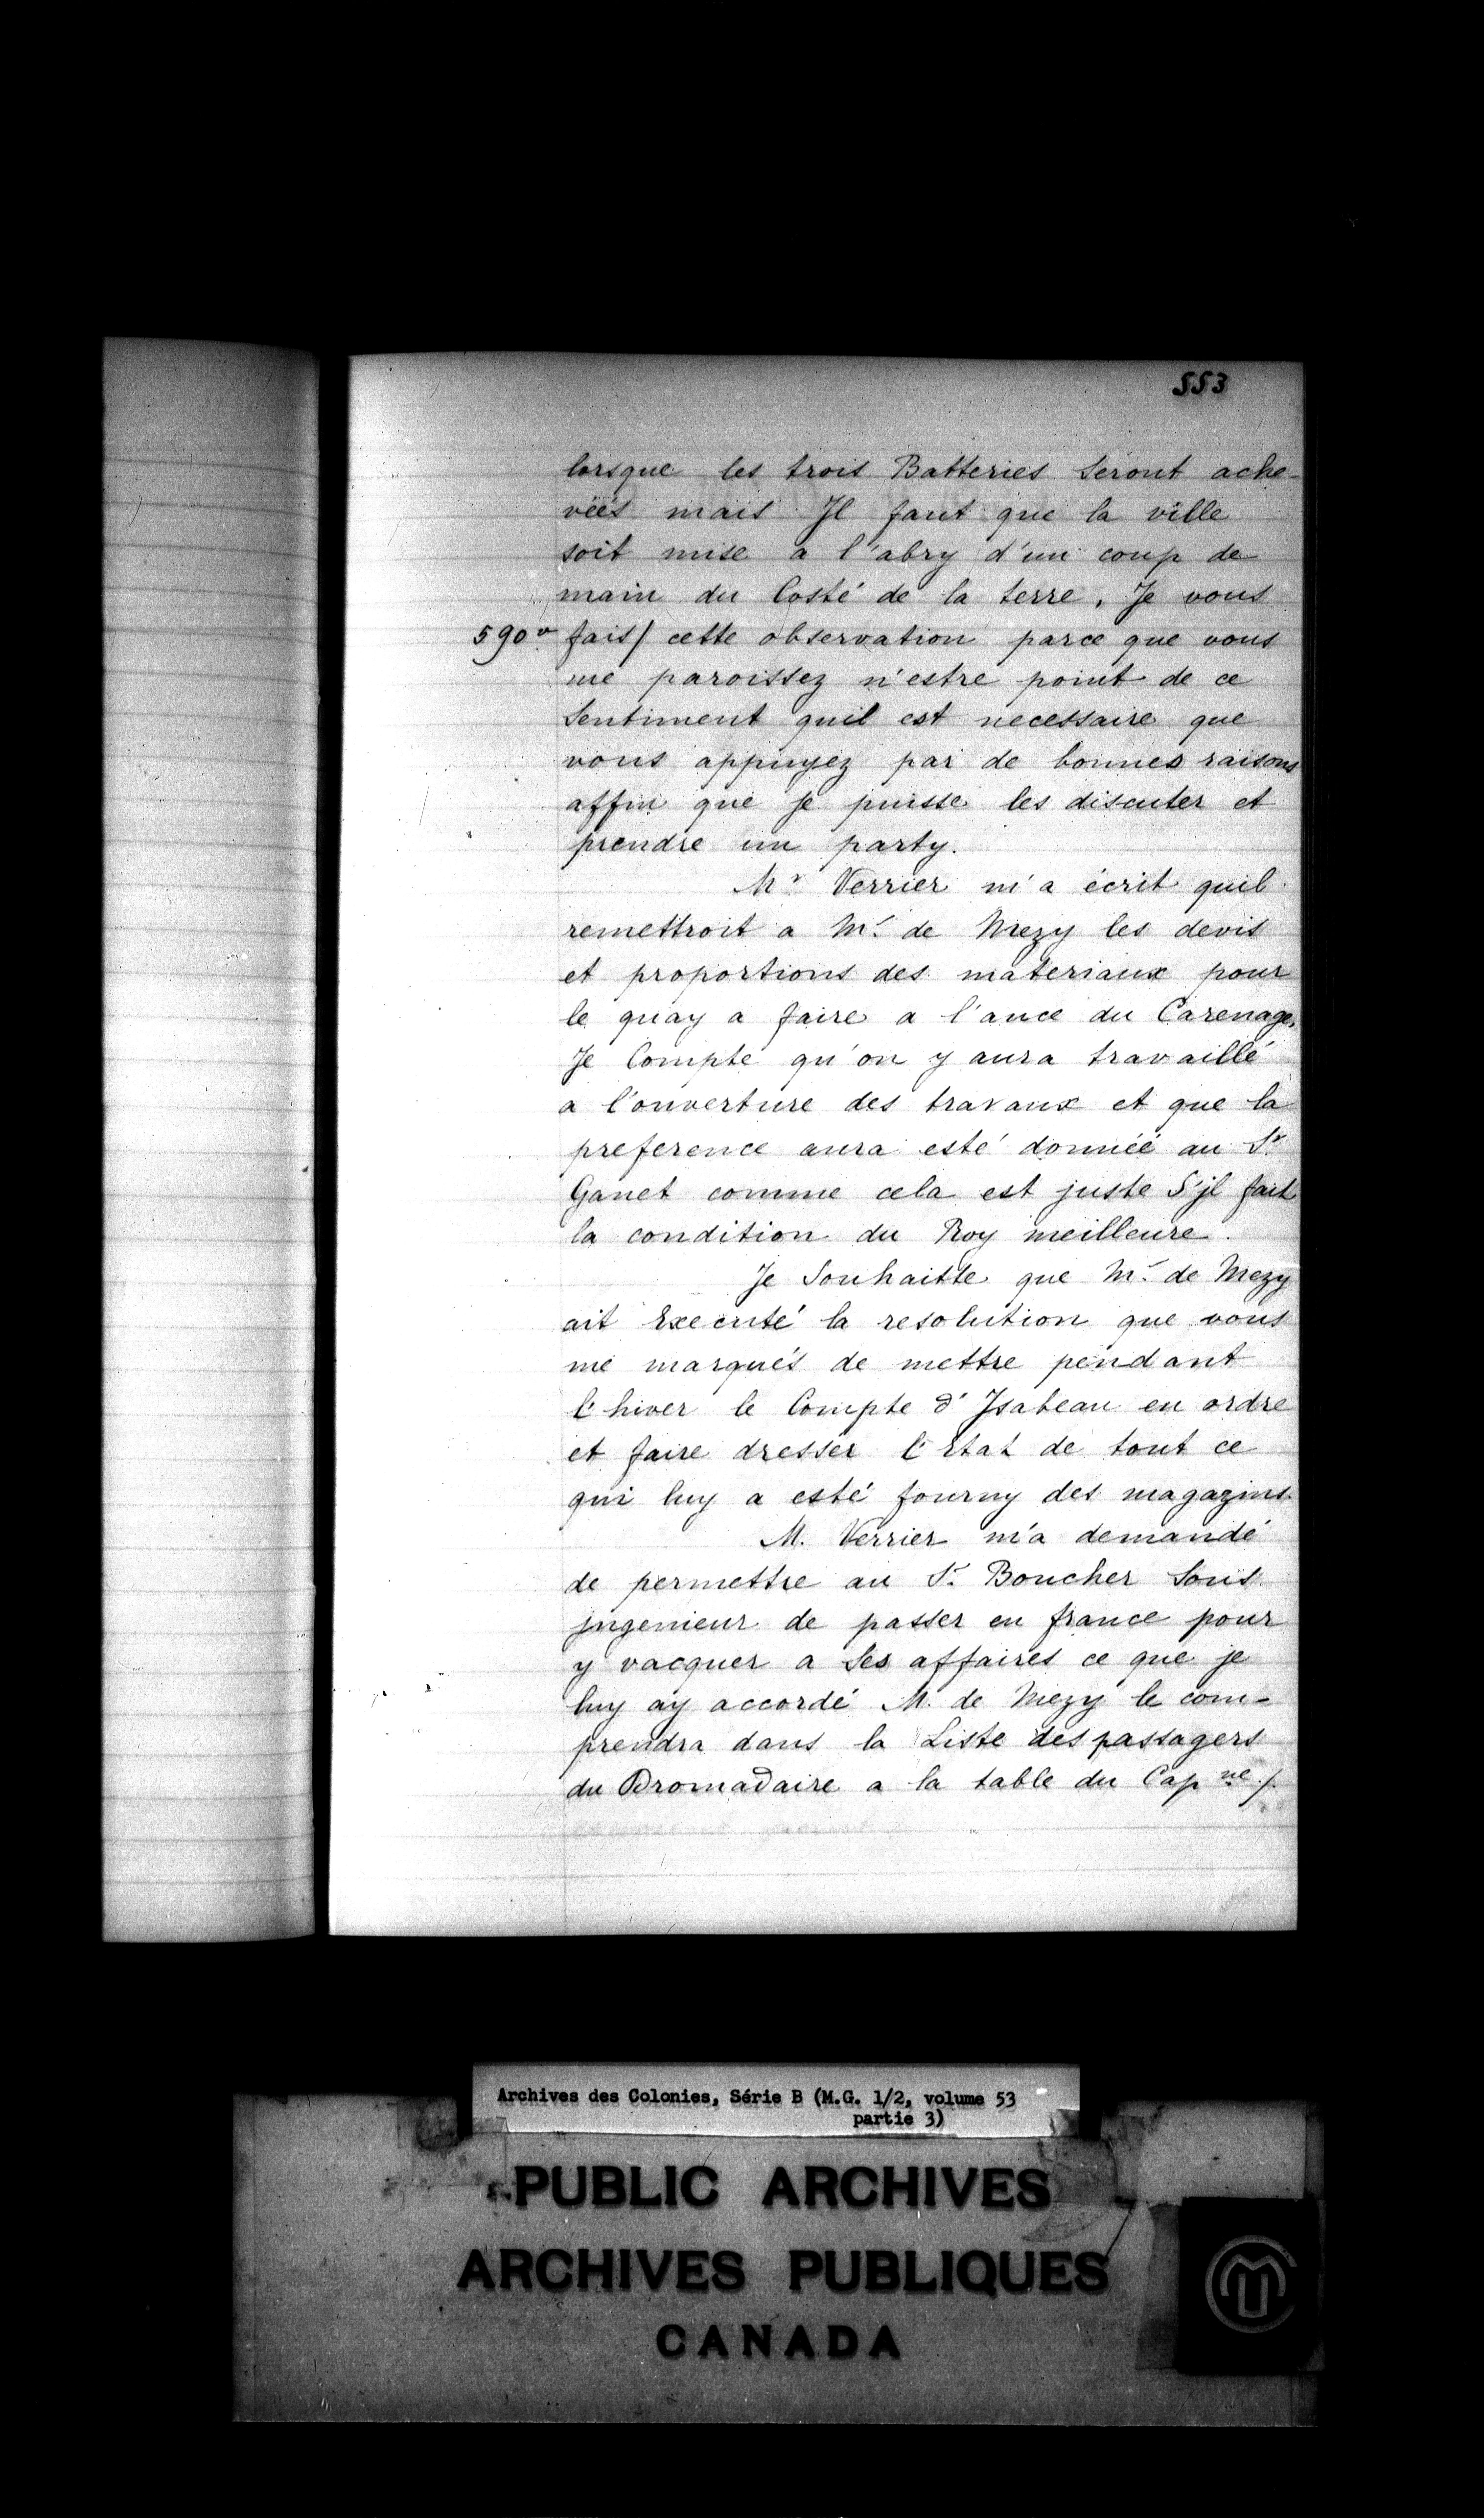 553
lorsque les trois Batteries Seront ache-
véés mais Il faut que la ville
soit mise a l'abry d'un coup de
main du Costé de la terre, Je vous
590v. fais/ cette observation parce que vous
me paroissez n'estre point de ce
Sentiment quil est necessaire que
vous appuyez par de bonnes raisons
affin que Je puisse les discuter et
prendre un party.
Mr Verrier m'a écrit quil
remettroit a Mr. de Mezy les devis
et proportions des materiaux pour
le quay a faire a l'ance du Carenage,
Je Compte qu'on y aura travaillé
a l'ouverture des travaux et que la
preference aura esté donnéé au Sr.
Ganet comme cela est juste S'jl fait
la condition du Roy meilleure.
Je Souhaitte que Mr. de Mezy
ait Executé la resolution que vous
me marqués de mettre pendant
l'hiver le Compte d'Isabeau en ordre
et faire dresser l'Etat de tout ce
qui luy a esté fourny des magazins.
M. Verrier m'a demandé
de permettre au Sr. Boucher Sous
jngenieur de passer en france pour
y vacquer a Ses affaires ce que je
luy ay accordé M. de Mezy le com-
prendra dans la Liste des passagers
du Dromadaire a la table du Capne./.
Archives des Colonies, Série B (M.G. 1/2, volume 53
partie 3)
PUBLIC ARCHIVES
ARCHIVES PUBLIQUES
CANADA